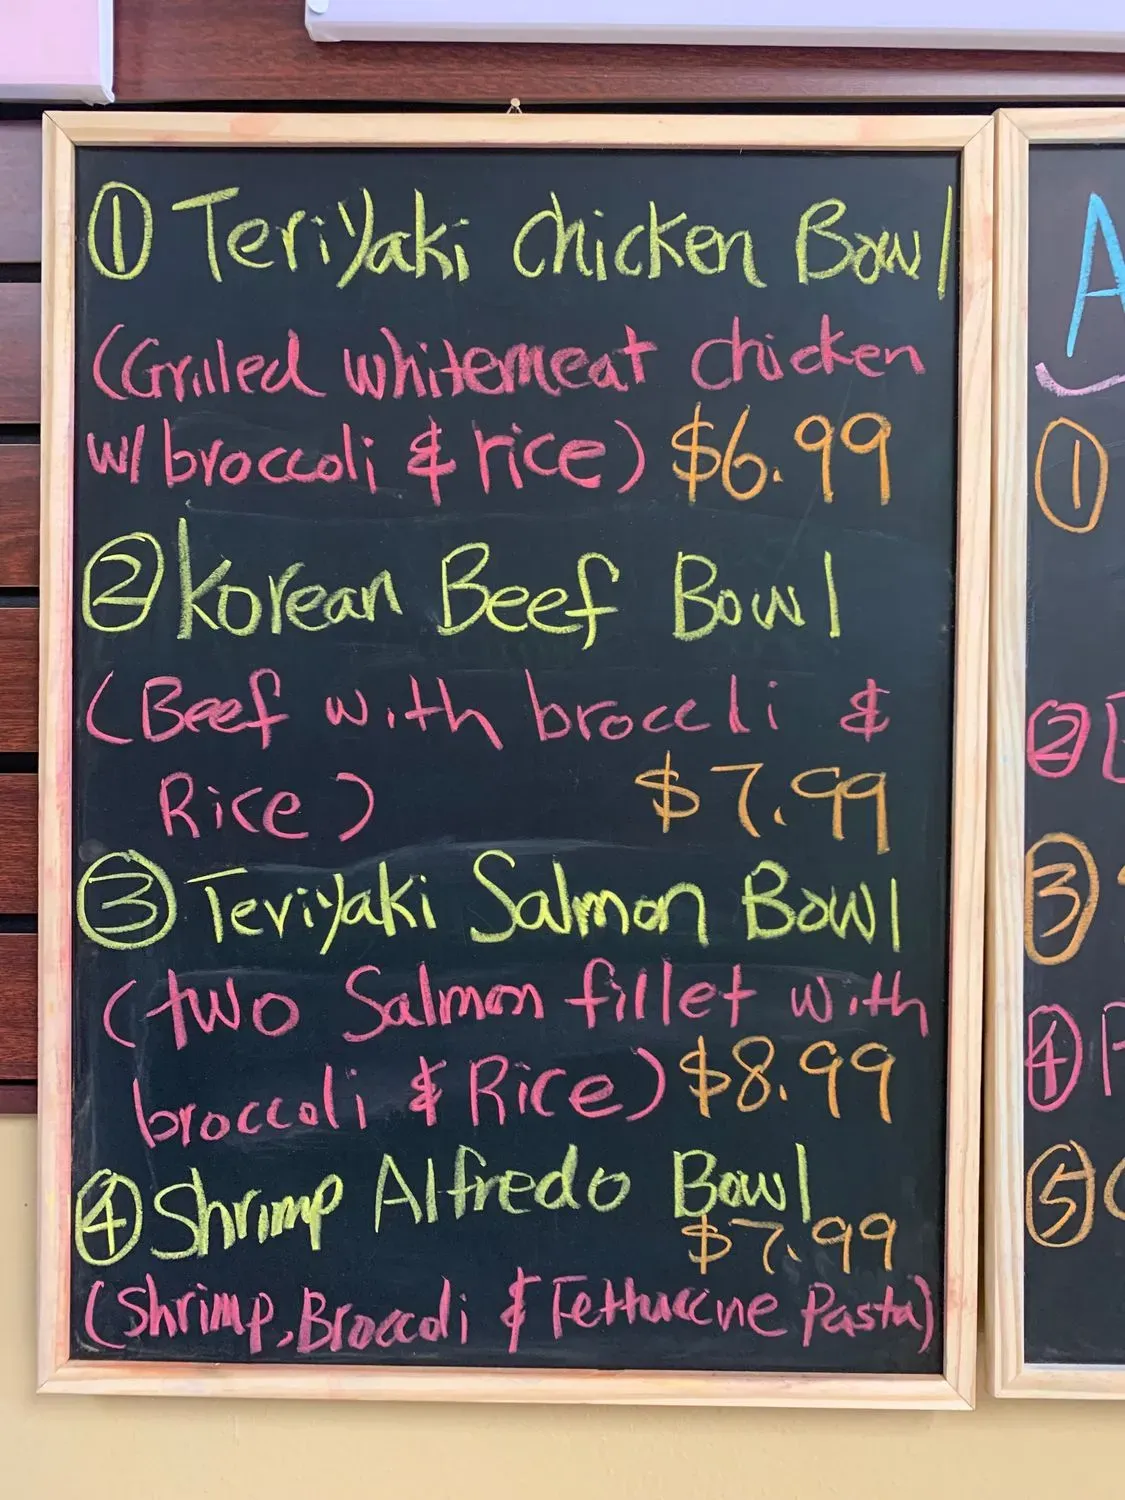 ① Teriyaki chicken Bowl
(Grilled whitemeat chicken
w/ broccoli & rice) $6.99
② Korean Beef Bowl
(Beef with broccli &
Rice) $7.99
③ Teriyaki Salmon Bowl
(two Salmon fillet with
broccoli & Rice) $8.99
④ Shrimp Alfredo Bowl
$7.99
(Shrimp, Broccoli & Fettuccine Pasta)
A
①
②
③
④
⑤